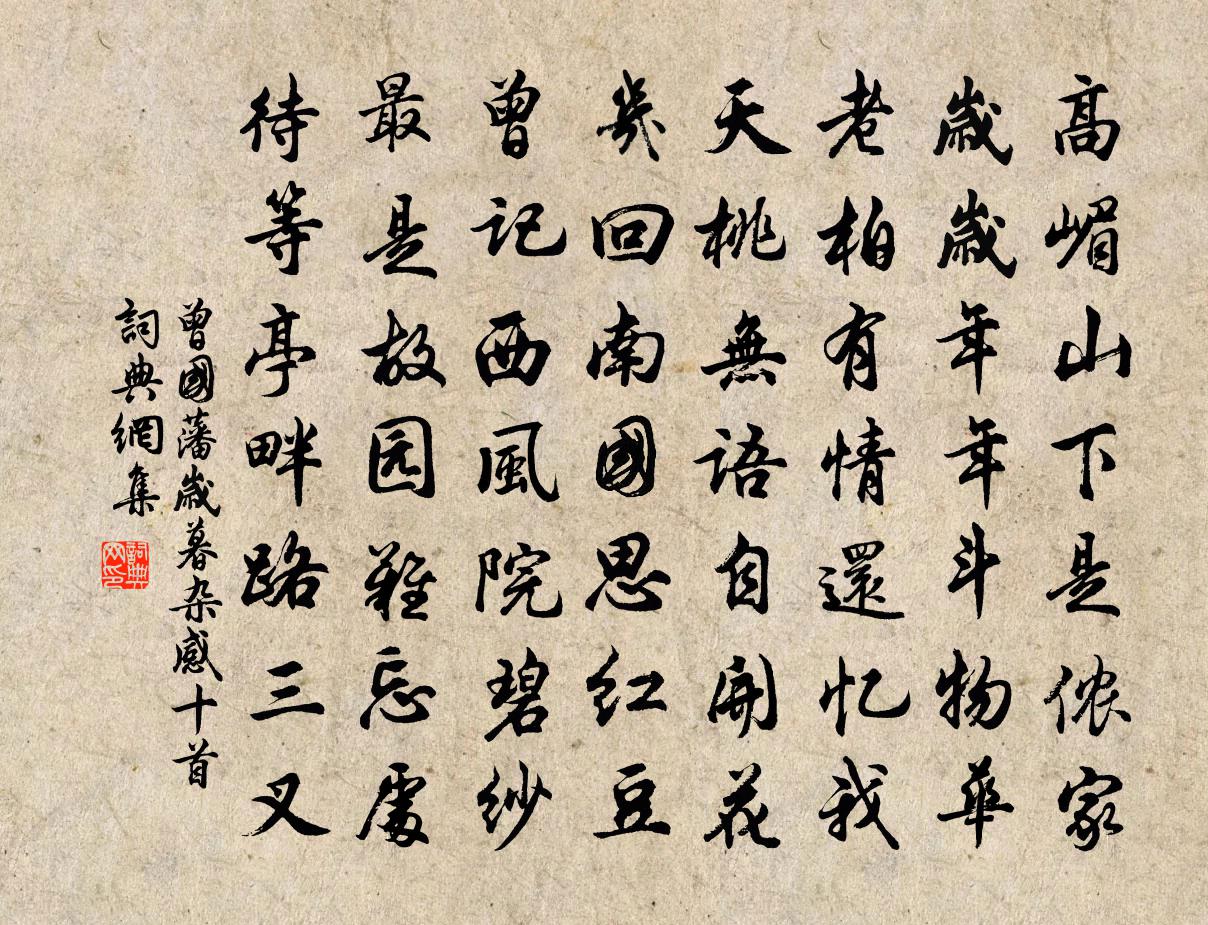 高嵋山下是侬家
歲歲年年斗物華
老柏有情還忆我
天桃無語自開花
幾回南國思红豆
曾记西風院碧紗
最是故园難忘處
待等亭畔路三叉
曾國藩歲暮杂感十首
詞典網集
詞典
网印